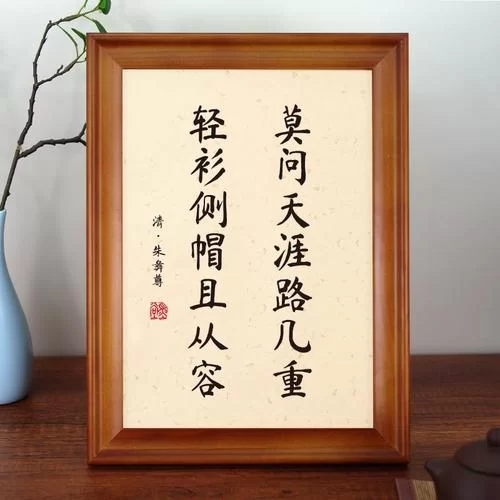 莫问天涯路几重
轻衫侧帽且从容
清·朱彝尊